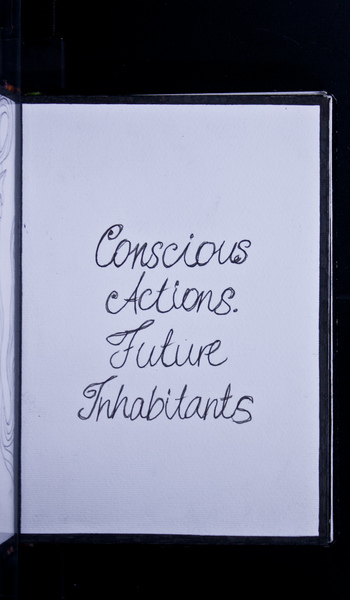 Conscious
Actions.
Future
Inhabitants